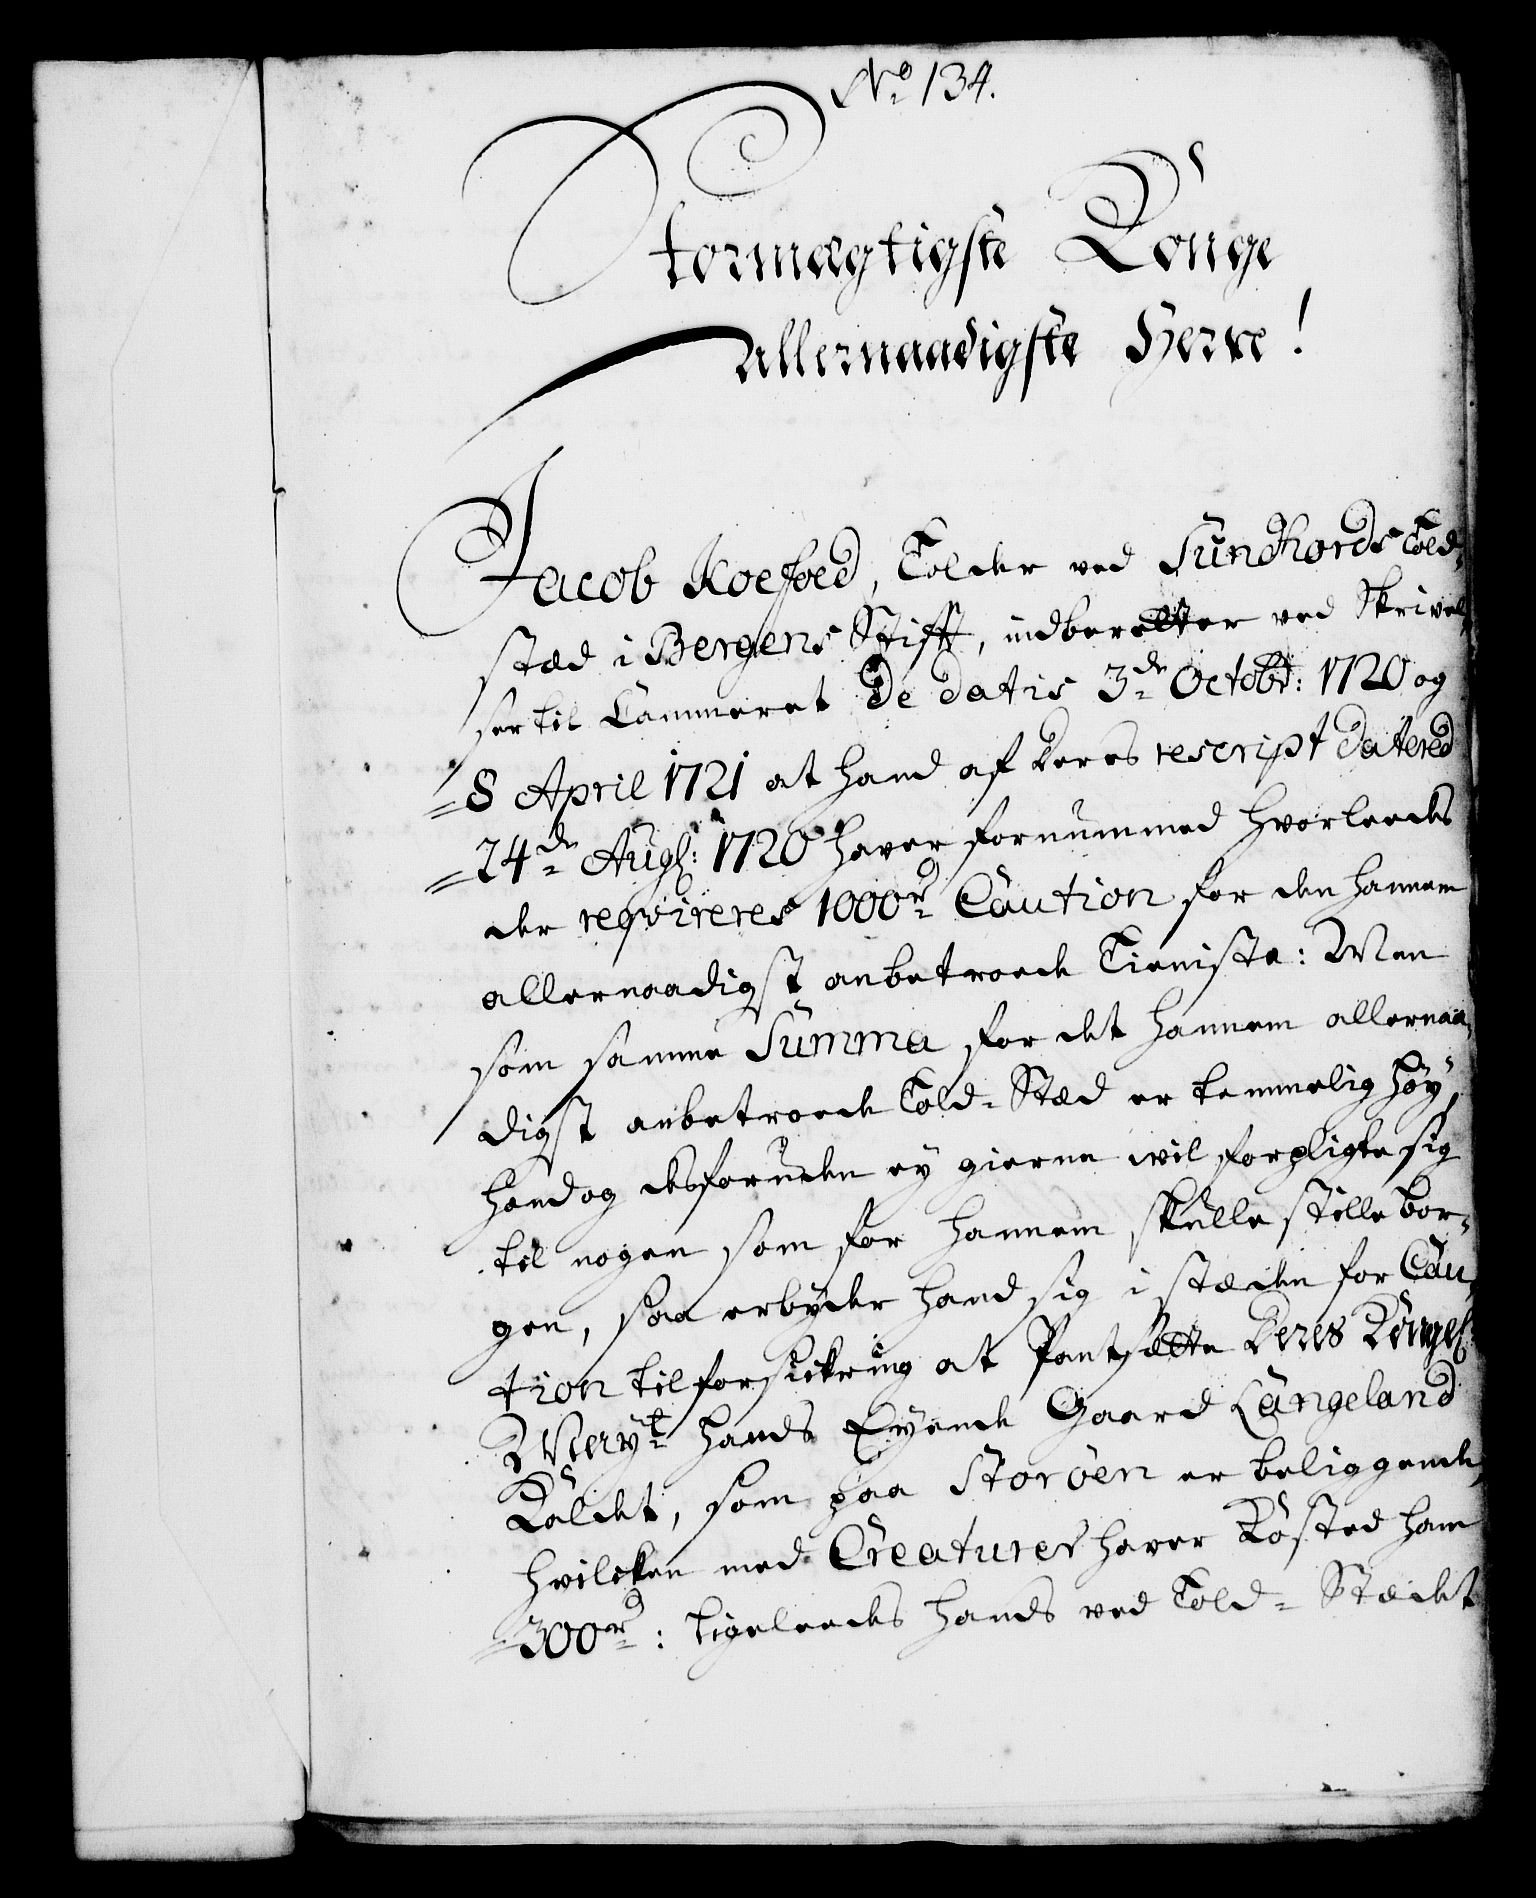 No 134.
Stormægtigste Konge
Allernaadigste Herre!
Jacob Koefoed, Tolder ved Sundhords Told-
stæd i Bergens Stifft, indberetter ved Skrivel-
ser til Cammeret De datis 3de Octobr: 1720 og
8 April 1721 at hand af deres rescript datered
24de Augs: 1720 haver fornummed hvorleedes
der reqvireres 1000rd Caution for den hannem
allernaadigst anbetroede Tieniste: Men
som samme Summa for det hannem allernaa-
digst anbetroede Told-Stæd er temmelig høy,
hand og desforuden ey gierne wil forpligte sig
til nogen som for hannem skulle stille bor-
gen, saa erbyder hand sig i stæden for Cau-
tion til forsickring at Pantsætte Deres Kongel:
Mayt hands Eyende Gaard Langeland
Kaldet, som paa Storöen er beliggende,
hvilcken med Creaturer haver Kosted ham
300rd: ligeleedes hands ved Told-Stædet